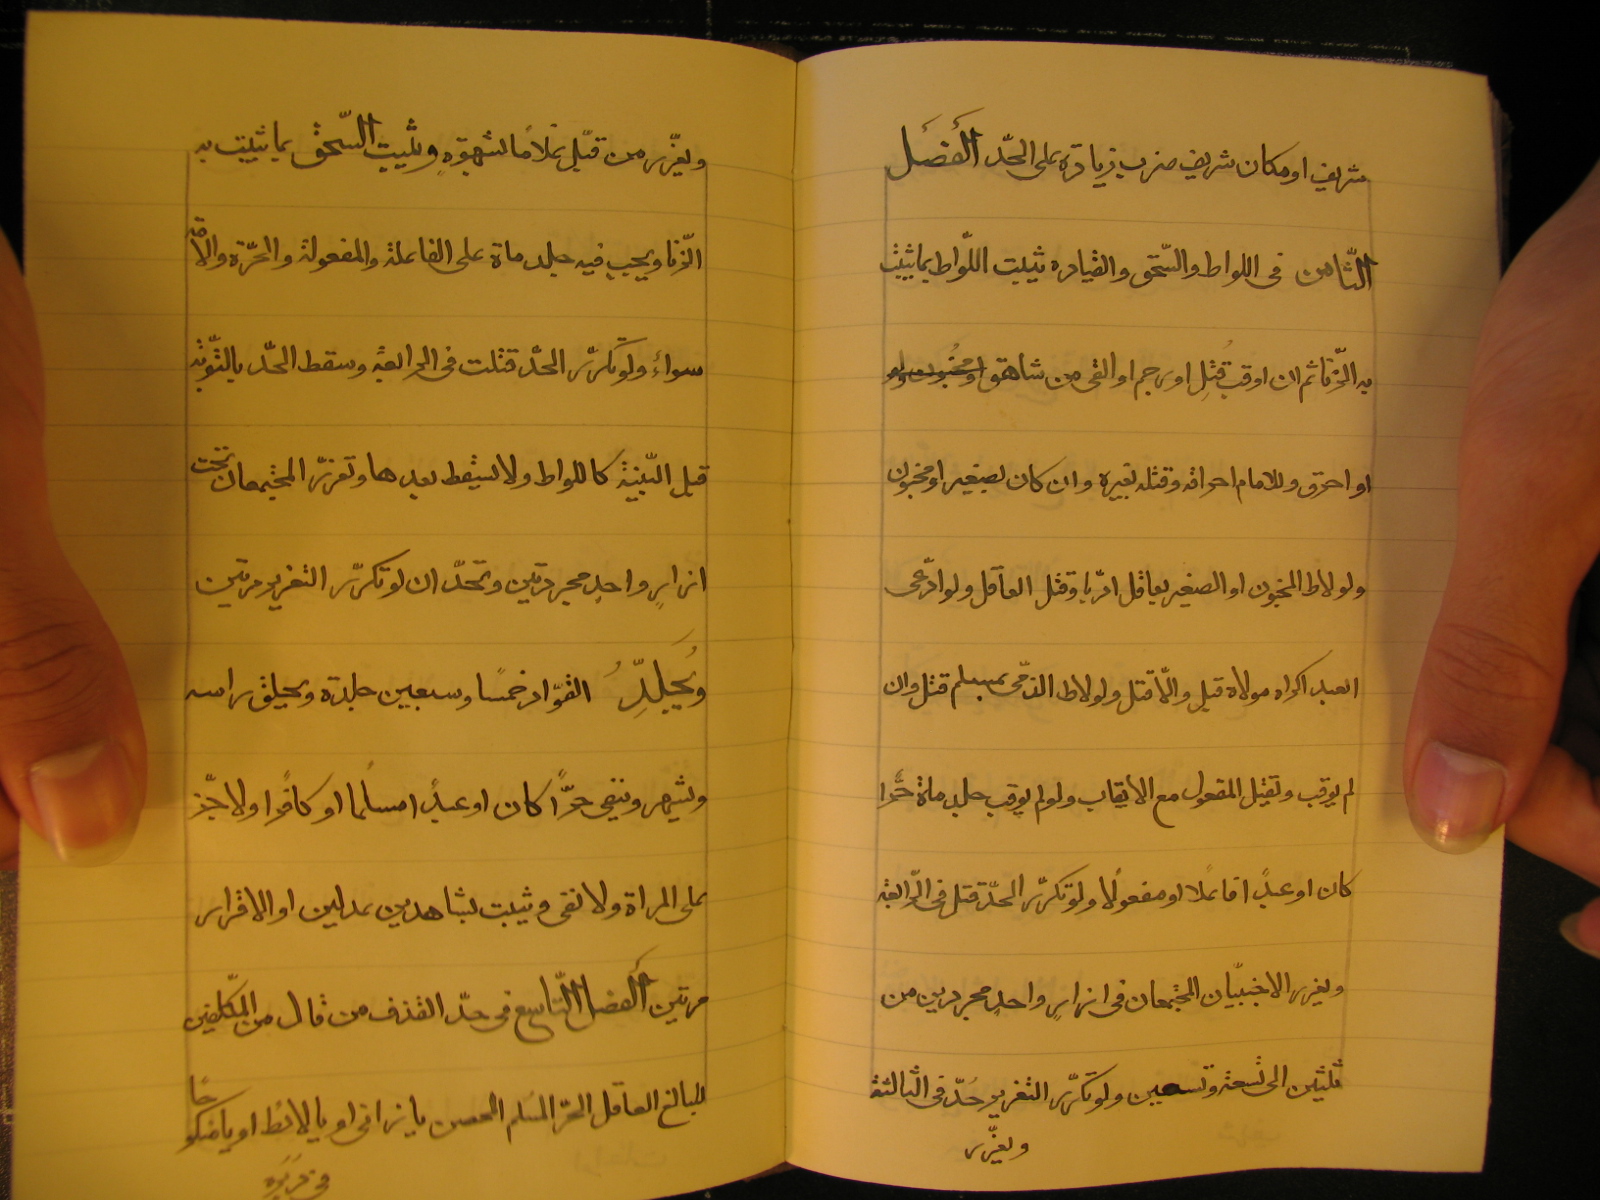 شريف او مكان شريف ضرب زيادة على الحدّ الفصل
الثّامن فى اللواط والسّحق والقيادة يثبت اللّواط بما يثبت
به الزّنا ثم ان اوقب قُتِل او رجم او القى من شاهق
او احرق وللامام احراقه وقتله بغيره وان كان بصغير او مجنون
ولو لاط المجنون او الصغير بعاقل ادّبا وقتل العاقل ولو ادّعى
العبد اكراه مولاه قبل والّا قتل ولو لاط الذمّى بمسلم قتل وان
لم يوقب ويقتل المفعول مع الايقاب ولو لم يوقب جلد ماة حرّا
كان او عبدًا فاعلا او مفعولًا ولو تكرّر الحدّ قتل فى الرّابعة
ويعزر الاجنبيّان المجتمعان فى ازار واحد مجردين من
ثلثين الى تسعة وتسعين ولو تكرّر التعزير حُدّ فى الثالثة
ويعزّر
ويعزّر من قبّل غلامًا بشهوة ويثبت السّحق بما يثبت به
الزّنا ويجب فيه جلد ماة على الفاعلة والمفعولة والحرّة والامة
سواء ولو تكرّر الحدّ قتلت فى الرابعة وسقط الحدّ بالتّوبة
قبل البّينة كاللواط ولا يسقط بعدها وتعزّر المجتمعان تحت
ازار واحد مجردتين وتحدّان لو تكرّر التعزير مرتين
ويُجلَدُ القوّاد خمسًا وسبعين جلدة ويحلق راسه
ويشهر وينفى حرًّا كان او عبدًا مسلما او كافرا ولا جزّ
على المراة ولا نفى ويثبت بشاهدين عدلين او الاقرار
مرتين الفصل التّاسع فى حدّ القذف من قال من المكلّفين
للبالغ العاقل الحرّ المسلم المحصن يا زانى او يا لائط او يا منكوحًا
فى دبره